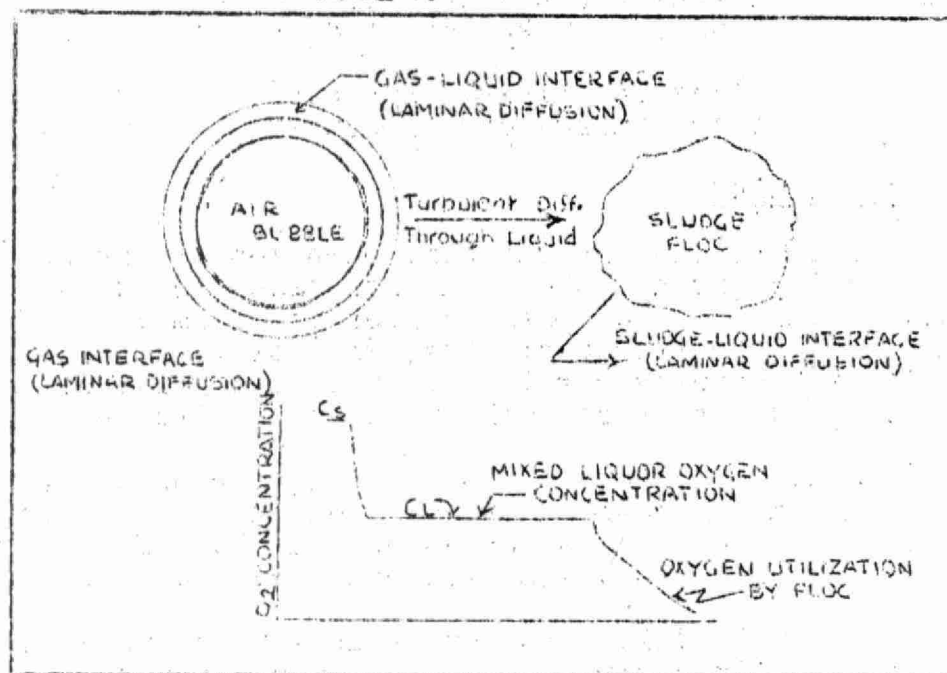 GAS-LIQUID INTERFACE
(LAMINAR DIFFUSION)
AIR
BUBBLE
Turbulent Diff.
Through Liquid
SLUDGE
FLOC
SLUDGE-LIQUID INTERFACE
(LAMINAR DIFFUSION)
GAS INTERFACE
(LAMINAR DIFFUSION)
O2 CONCENTRATION
Cs
CL
MIXED LIQUOR OXYGEN
CONCENTRATION
OXYGEN UTILIZATION
BY FLOC